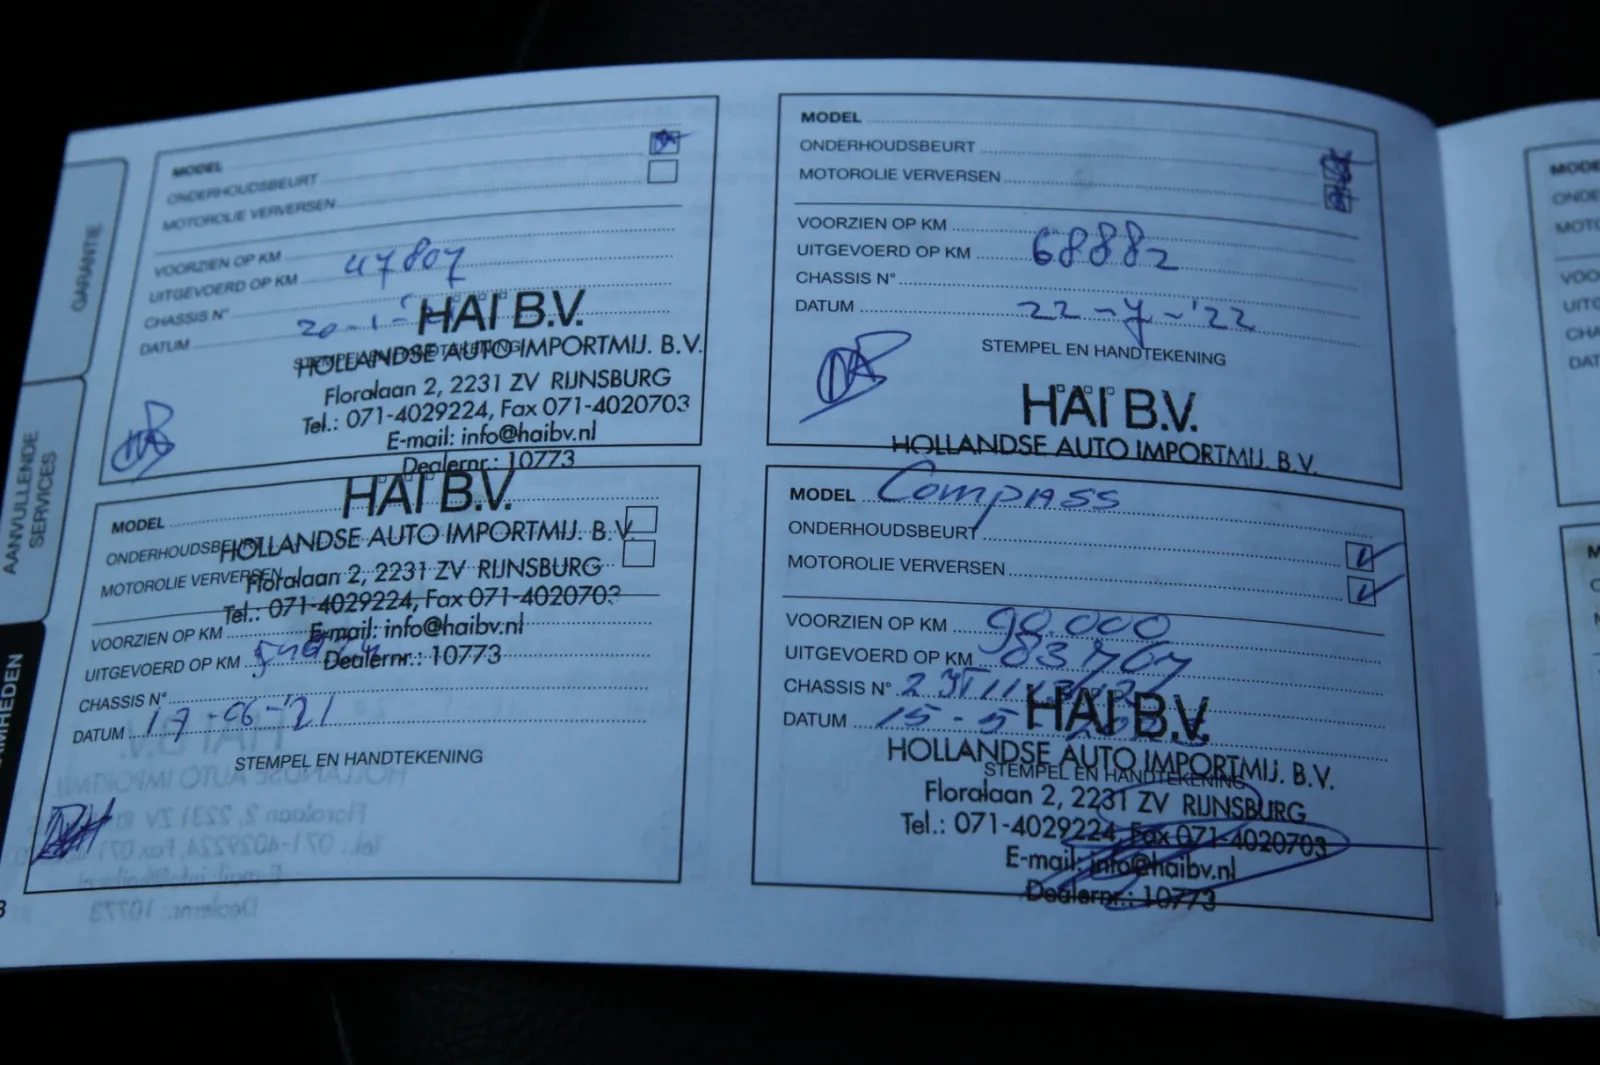 GARANTIE
AANVULLENDE
SERVICES
MODEL
ONDERHOUDSBEURT
MOTOROLIE VERVERSEN
VOORZIEN OP KM
UITGEVOERD OP KM 47807
CHASSIS N°
DATUM 20-1-
STEMPEL EN HANDTEKENING
HAI B.V.
HOLLANDSE AUTO IMPORTMIJ. B.V.
Floralaan 2, 2231 ZV RIJNSBURG
Tel.: 071-4029224, Fax 071-4020703
E-mail: info@haibv.nl
Dealernr.: 10773
MODEL
ONDERHOUDSBEURT
MOTOROLIE VERVERSEN
VOORZIEN OP KM
UITGEVOERD OP KM 68882
CHASSIS N°
DATUM 22-7-'22
STEMPEL EN HANDTEKENING
HAI B.V.
HOLLANDSE AUTO IMPORTMIJ. B.V.
MODEL
ONDERHOUDSBEURT
MOTOROLIE VERVERSEN
HAI B.V.
HOLLANDSE AUTO IMPORTMIJ. B.V.
Floralaan 2, 2231 ZV RIJNSBURG
Tel.: 071-4029224, Fax 071-4020703
E-mail: info@haibv.nl
Dealernr.: 10773
VOORZIEN OP KM
UITGEVOERD OP KM
CHASSIS N°
DATUM 17-06-'21
STEMPEL EN HANDTEKENING
MODEL Compass
ONDERHOUDSBEURT
MOTOROLIE VERVERSEN
VOORZIEN OP KM 90.000
UITGEVOERD OP KM 83767
CHASSIS N°
DATUM 15-5
STEMPEL EN HANDTEKENING
HAI B.V.
HOLLANDSE AUTO IMPORTMIJ. B.V.
Floralaan 2, 2231 ZV RIJNSBURG
Tel.: 071-4029224, Fax 071-4020703
E-mail: info@haibv.nl
Dealernr.: 10773